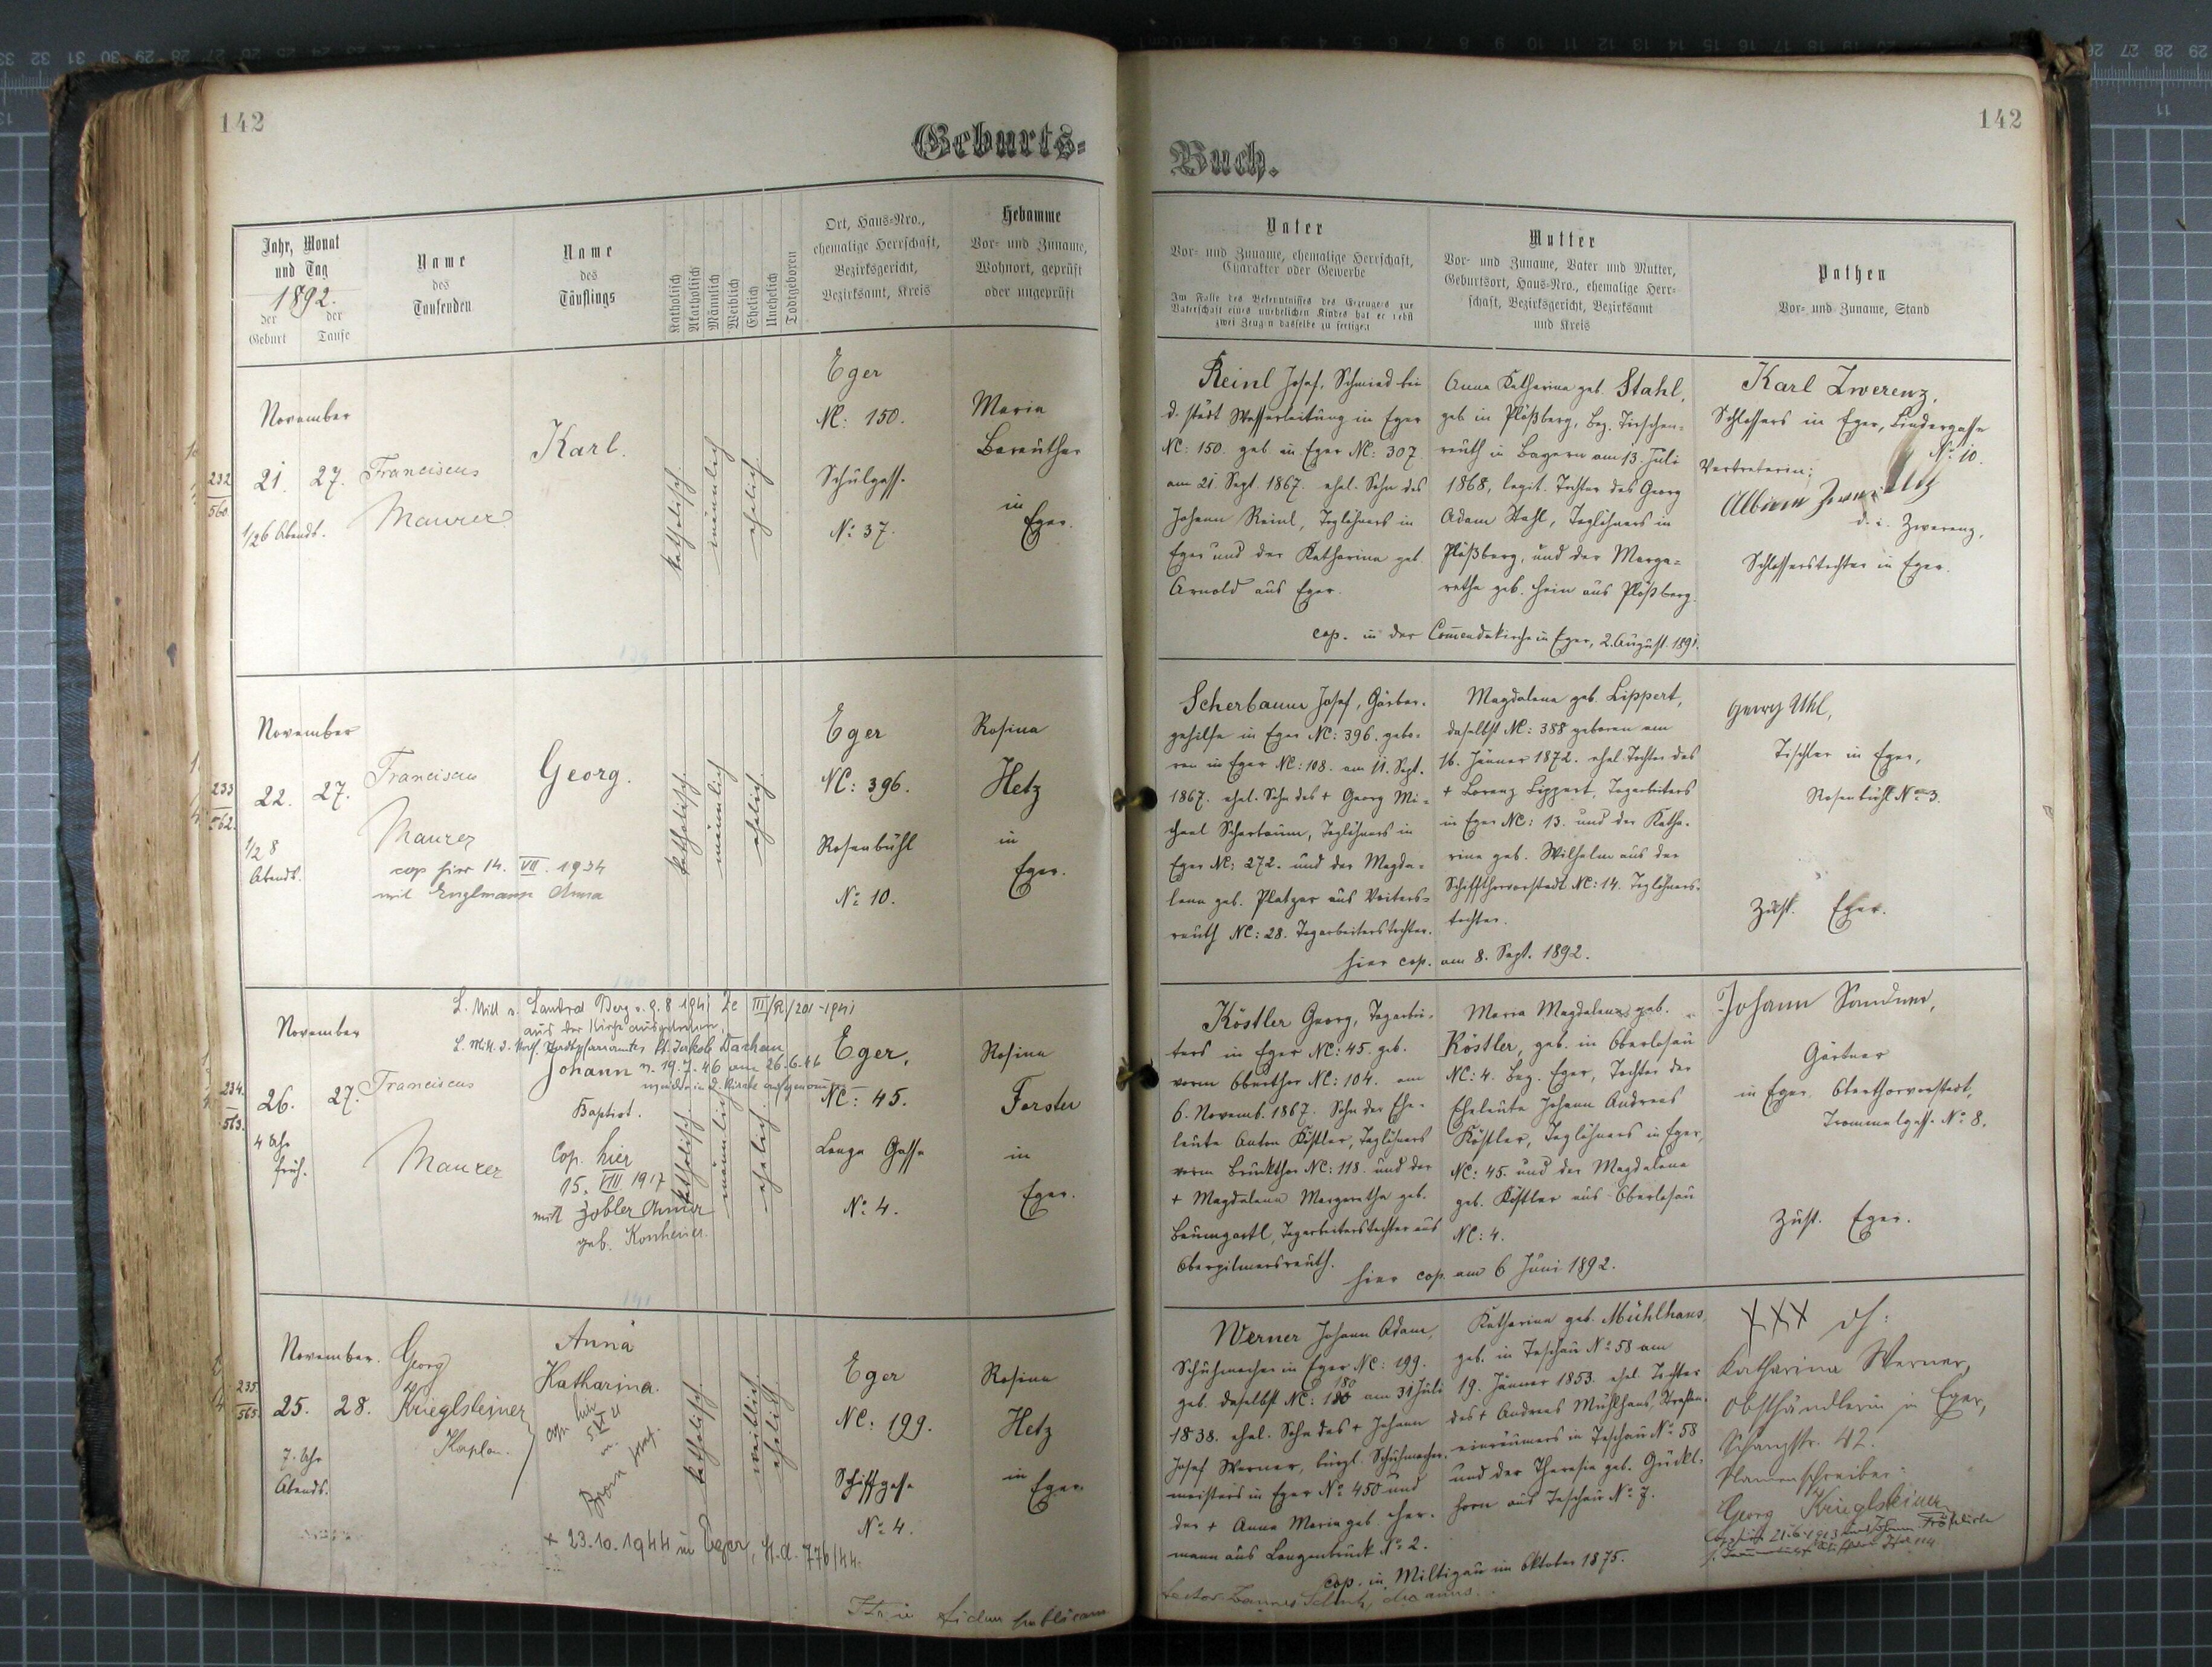 142
Geburts=
Jahr, Monat
und Tag
1892.
der Geburt
der Taufe
Name
des
Taufenden
Name
des
Täuflings
Katholisch
Akatholisch
Männlich
Weiblich
Ehelich
Unehelich
Todtgeboren
Ort, Haus-Nro.,
ehemalige Herrschaft,
Bezirksgericht,
Bezirksamt, Kreis
Hebamme
Vor- und Zuname,
Wohnort, geprüft
oder ungeprüft
232
560.
November
21. 27.
1/26 Abends.
Franciscus
Maurer
Karl.
katholisch.
männlich
ehelich.
Eger
NC: 150.
Schulgasse
No 37.
Maria
Bareuther
in
Eger.
233
562.
November
22. 27.
1/2 8
Abends.
Franciscus
Maurer
cop hier 14. VII. 1934
mit Englmann Anna
Georg.
katholisch.
männlich
ehelich.
Eger
NC: 396.
Rosenbühl
No 10.
Rosina
Hetz
in
Eger.
234.
563.
November
26. 27.
4 Uhr
früh.
Franciscus
Maurer
aus der Kirche ausgetreten.
Johann
Baptist.
Cop. hier
15. VIII 1917
katholisch.
männlich
ehelich.
Eger,
NC: 45.
Lange Gasse
No 4.
Rosina
Forster
in
Eger.
235.
565.
November.
25. 28.
7. Uhr
Abends.
Georg
Krieglsteiner
Kaplan.
Anna
Katharina.
cop. hier
katholisch.
weiblich
ehelich.
+ 23.10.1944 in Eger, St.A. 776/44.
Eger
NC: 199.
Schiffgasse
No 4.
Rosina
Hetz
in
Eger.
fidem publicam
142
Buch.
Vater
Vor- und Zuname, ehemalige Herrschaft,
Charakter oder Gewerbe
Im Falle des Bekenntnisses des Erzeugers zur
Vaterschaft eines unehelichen Kindes hat er nebst
zwei Zeugen dasselbe zu fertigen
Mutter
Vor- und Zuname, Vater und Mutter,
Geburtsort, Haus-Nro., ehemalige Herr=
schaft, Bezirksgericht, Bezirksamt
und Kreis
Pathen
Vor- und Zuname, Stand
Reinl Josef, Schmied bei
d. städt Wasserleitung in Eger
NC: 150. geb. in Eger NC: 307.
am 21. Sept. 1867. ehel. Sohn des
Johann Reinl, Taglöhners in
Eger und der Katharina geb.
Arnold aus Eger.
Anna Katharina geb. Stahl,
geb. in Plößberg, Bez. Tirschen=
reuth in Bayern am 13. Juli
1868, legit. Tochter des Georg
Adam Stahl, Taglöhners in
Plößberg, und der Marga=
retha geb. Hein aus Plößberg.
cop. in der Commendakirche in Eger, 2. August. 1891.
Karl Zwerenz,
Schlossers in Eger, Lindergasse
No 10.
Vertreterin:
d. i. Zwerenz,
Schlosserstochter in Eger.
Scherbaum Josef, Gärber-
gehilfe in Eger NC: 396. gebo-
ren in Eger NC: 108. am 11. Sept.
1867. ehel. Sohn des + Georg Mi=
chael Scherbaum, Taglöhners in
Eger NC: 272. und der Magda-
lena geb. Platzer aus Voiters=
reuth NC: 28. Tagarbeiterstochter.
Magdalena geb. Lippert,
daselbst NC: 388 geboren am
16. Jänner 1872. ehel. Tochter des
+ Lorenz Lippert, Tagarbeiters
in Eger NC: 13. und der Katha-
rina geb. Wilhelm aus der
Schiffthorvorstadt NC: 14. Taglöhners-
tochter.
hier cop. am 8. Sept. 1892.
Georg Uhl,
Tischler in Eger,
Rosenbühl No 3.
Zust. Eger.
Köstler Georg, Tagarbei-
ters in Eger NC: 45. geb.
vorm Oberthor NC: 104. am
6. Novemb. 1867. Sohn der Ehe-
leute Anton Köstler, Taglöhners
vorm Bruckthor NC: 118. und der
+ Magdalena Margaretha geb.
Baumgartl, Tagarbeiterstochter aus
Oberpilmersreuth.
Maria Magdalena geb.
Köstler, geb. in Oberlosau
NC: 4. Bez. Eger, Tochter der
Eheleute Johann Andreas
Köstler, Taglöhners in Eger,
NC: 45. und der Magdalena
geb. Köstler aus Oberlosau
NC: 4.
hier cop. am 6 Juni 1892.
Johann Sandner,
Gärtner
in Eger. Oberthorvorstadt,
Trommelgasse No 8.
Zust. Eger.
Werner Johann Adam,
Schuhmacher in Eger NC: 199.
geb. daselbst NC: 180 am 31 Juli
1838. ehel. Sohn des + Johann
Josef Werner, bürgl. Schuhmacher-
meisters in Eger No 450 und
der + Anna Maria geb. Eher-
mann aus Langenbruck No 2.
Katharina geb. Mühlhans,
geb. in Teschau No 58 am
19. Jänner 1853. ehel. Tochter
des + Andreas Mühlhans, Straßen-
einräumers in Teschau No 58
und der Theresia geb. Gückl-
horn aus Teschau No 7.
cop. in Miltigau im Oktober 1875.
XXX
Katharina Werner,
Obsthändlerin in Eger,
Schanzstr. 42.
Namensschreiber:
Georg Krieglsteiner